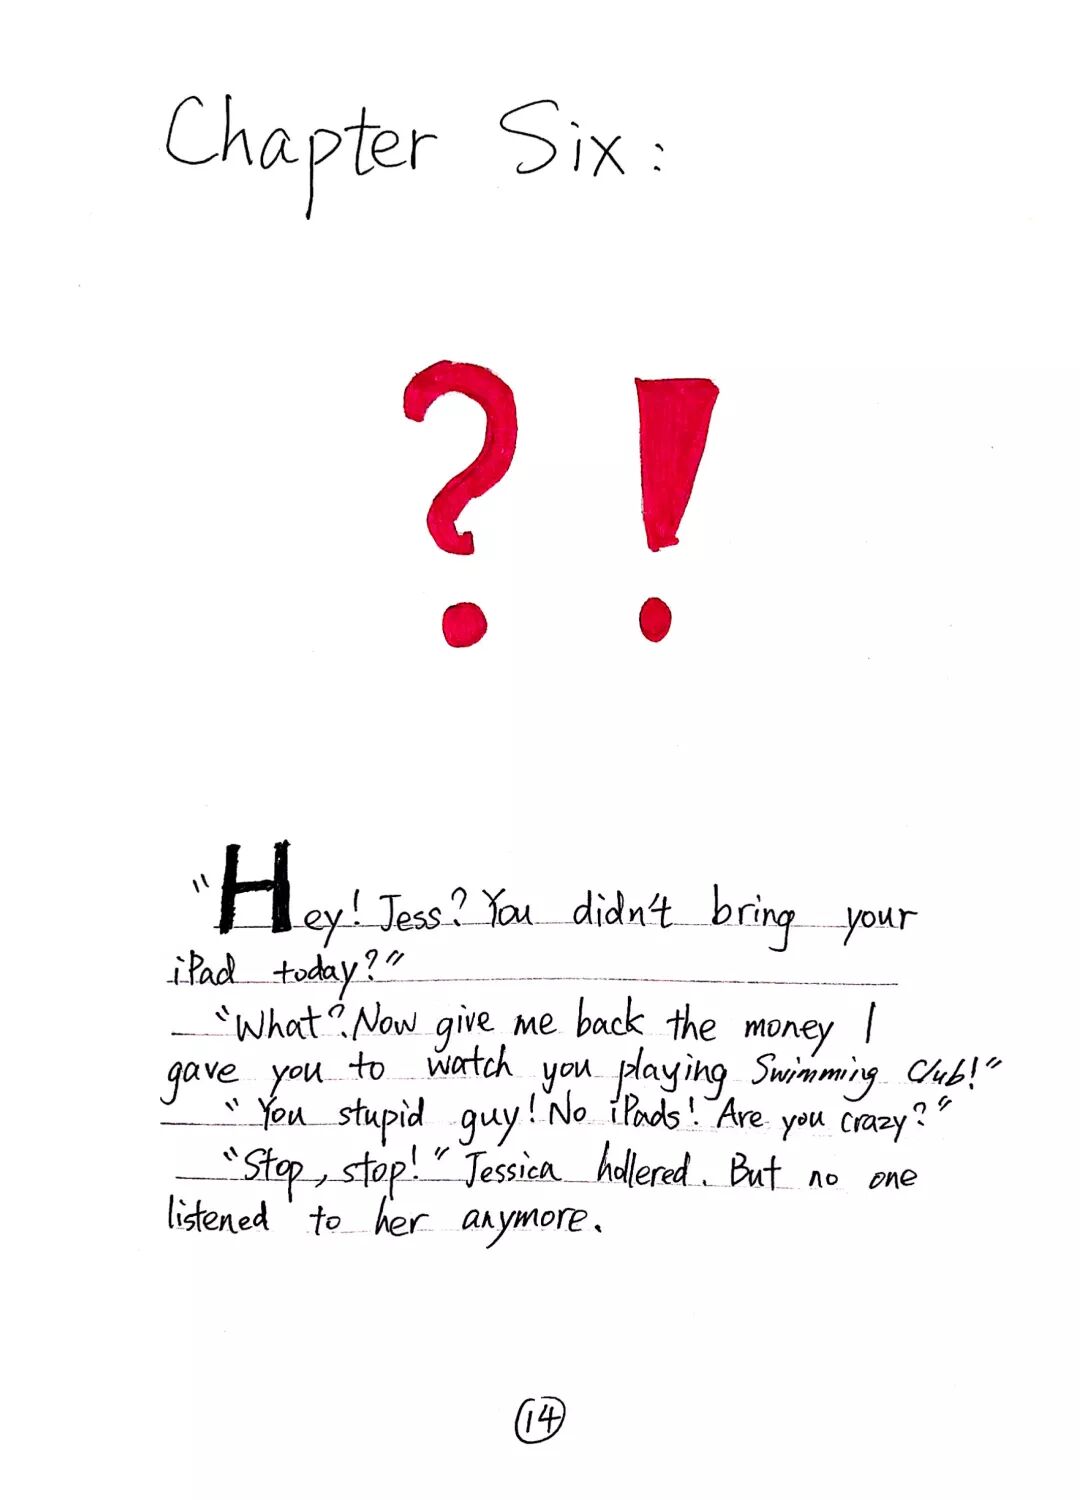 Chapter Six:
? !
"Hey! Jess? You didn't bring your
iPad today?"
"What? Now give me back the money I
gave you to watch you playing Swimming Club!"
"You stupid guy! No iPads! Are you crazy?"
"Stop, stop!" Jessica hollered. But no one
listened to her anymore.
14